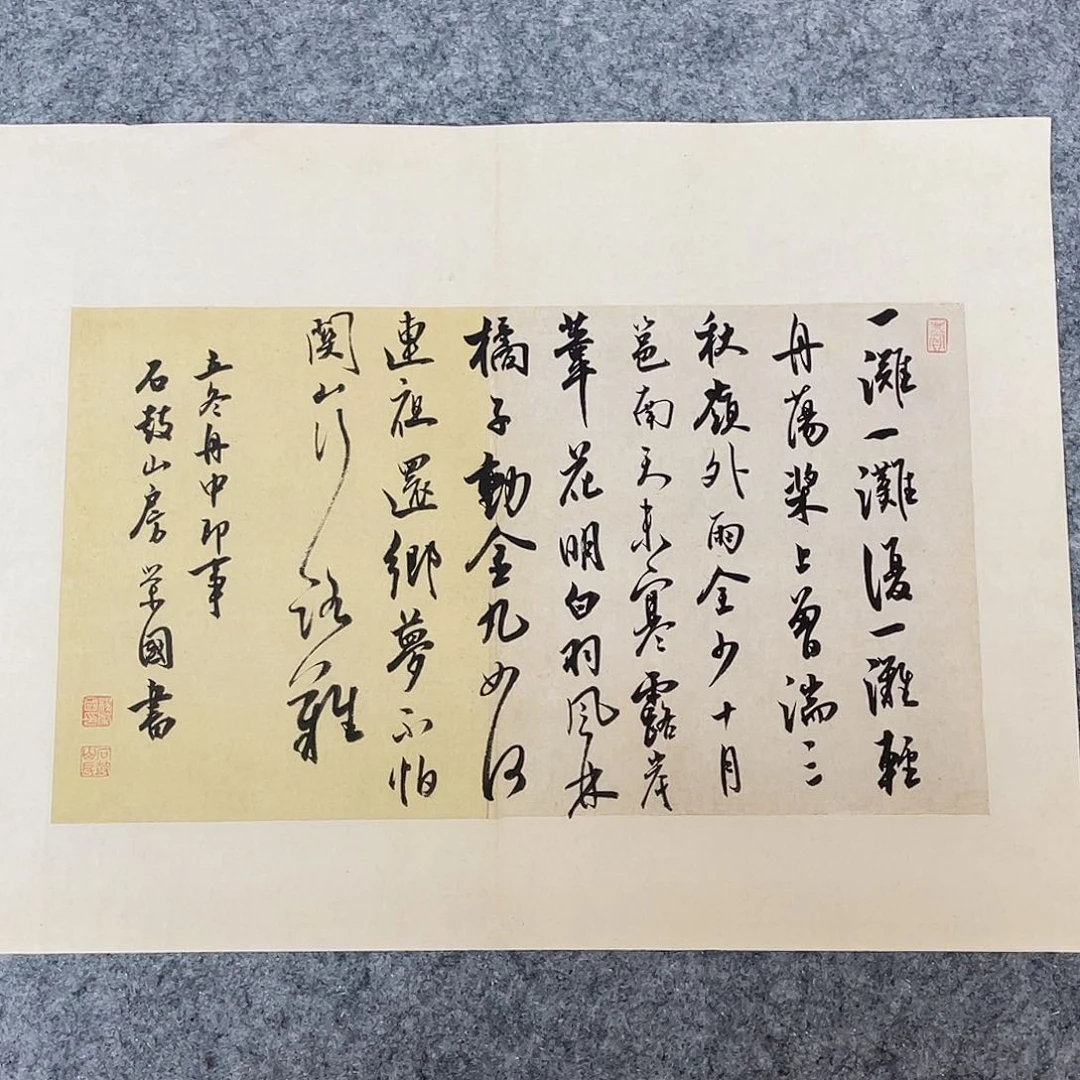 一灘一灘復一灘輕
舟蕩槳上曾湍三
秋嶺外雨全少十月
邕南天未寒露岸
葦花明白羽風林
橘子動金丸如何
連夜還鄉夢不怕
関山行路難
立冬舟中即事
石鼓山房荣國書